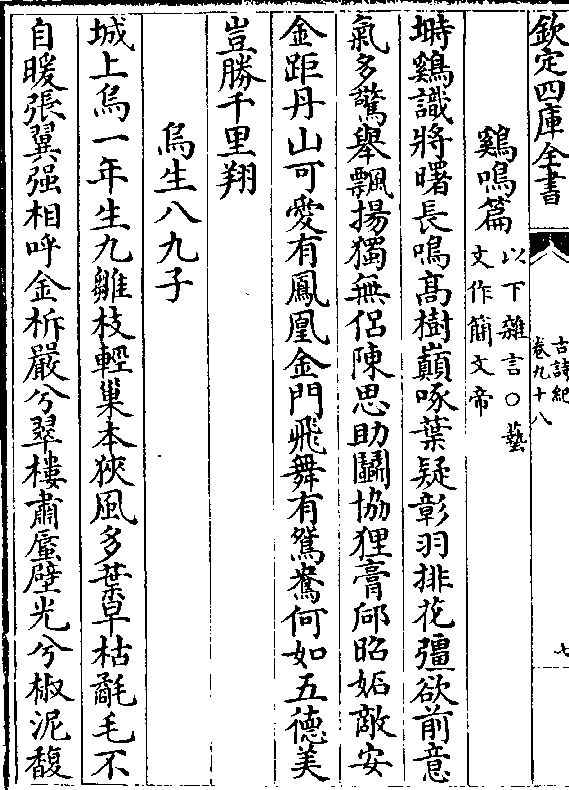 欽定四庫全書
古詩紀
卷九十八
七
鷄鳴篇
以下雜言○藝
文作簡文帝
塒鷄識將曙長鳴高樹巔啄葉疑彰羽排花彊欲前意
氣多驚舉飄揚獨無侣陳思助鬭協狸膏郈昭妬敵安
金距丹山可愛有鳳凰金門飛舞有鴛鴦何如五德美
豈勝千里翔
烏生八九子
城上烏一年生九雛枝輕巢本狹風多葉早枯氄毛不
自暖張翼强相呼金柝嚴兮翠樓肅蜃壁光兮椒泥馥